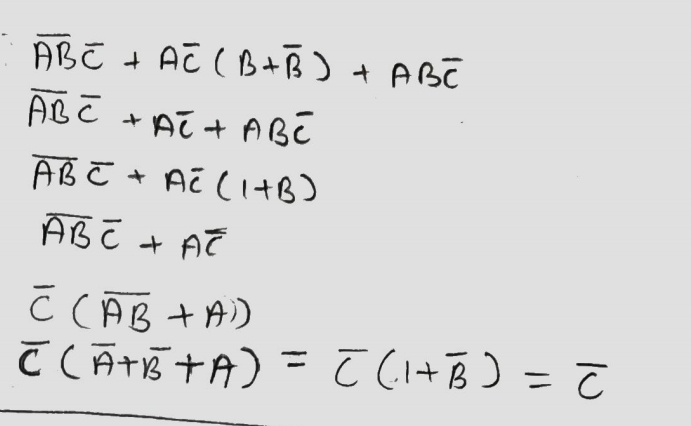 A̅B̅ C̅ + AC̅ ( B+B̅ ) + ABC̅
A̅B̅ C̅ + AC̅ + ABC̅
A̅B̅ C̅ + AC̅ ( 1+B )
A̅B̅ C̅ + AC̅
C̅ ( A̅B̅ + A ))
C̅ ( A̅+B̅ + A ) = C̅ ( 1+B̅ ) = C̅